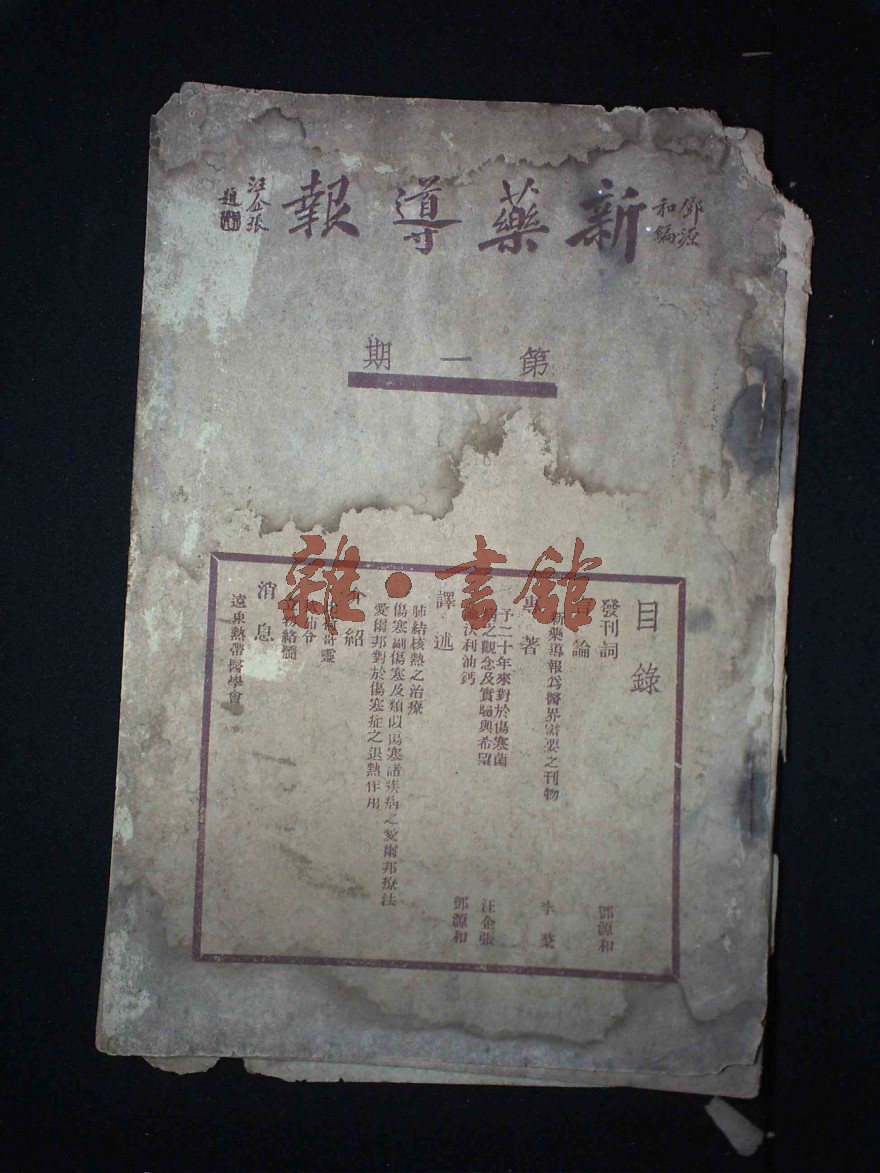 鄧源
和編
新藥導報
汪企張
題
第一期
目錄
發刊詞 鄧源和
論
新藥導報爲醫界需要之刊物 李
專著
予二十年來對於傷寒菌
病之觀念及實驗與希望 汪企張
沃利油鈣 鄧源和
譯述
肺結核熱之治療
傷寒副傷寒及類似傷寒諸疾病之愛爾邦療法
愛爾邦對於傷寒症之退熱作用
介紹
哥靈
命
物絡髓
消息
遠東熱帶醫學會
雜·書館